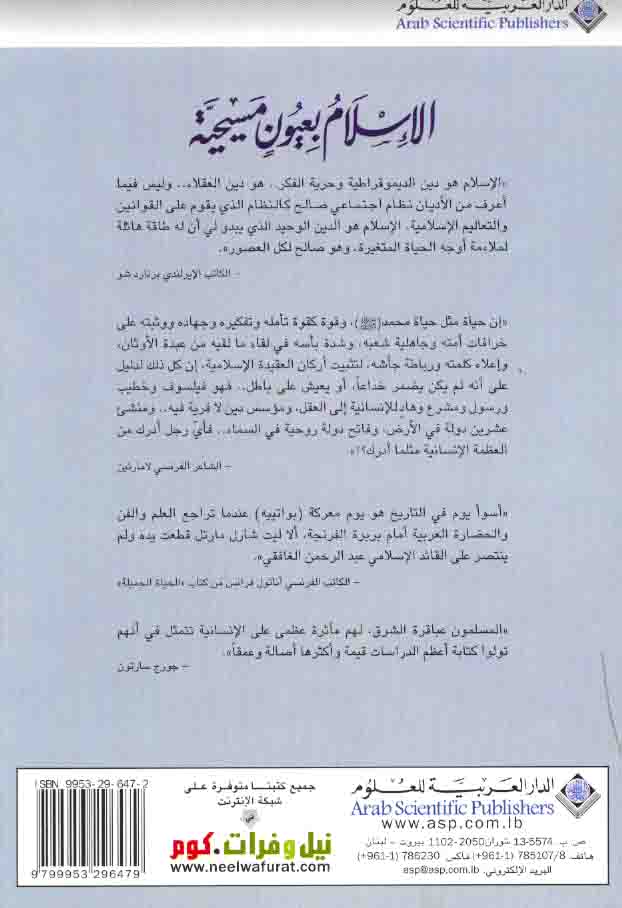 الدار العربية للعلوم
Arab Scientific Publishers
الإسلام بعيون مسيحية
»الإسلام هو دين الديموقراطية وحرية الفكر.. هو دين العقلاء.. وليس فيما
أعرف من الأديان نظام اجتماعي صالح كالنظام الذي يقوم على القوانين
والتعاليم الإسلامية. الإسلام هو الدين الوحيد الذي يبدو لي أن له طاقة هائلة
لملاءمة أوجه الحياة المتغيرة، وهو صالح لكل العصور«.
– الكاتب الإيرلندي برنارد شو
»إن حياة مثل حياة محمد (ﷺ)، وقوة كقوة تأمله وتفكيره وجهاده ووثبته على
خرافات أمته وجاهلية شعبه، وشدة بأسه في لقاء ما لقيه من عبدة الأوثان،
وإعلاء كلمته ورباطة جأشه، لتثبيت أركان العقيدة الإسلامية، إن كل ذلك لدليل
على أنه لم يكن يضمر خداعاً، أو يعيش على باطل.. فهو فيلسوف وخطيب
ورسول ومشرع وهاد للإنسانية إلى العقل، ومؤسس دين لا فرية فيه.. ومنشئ
عشرين دولة في الأرض، وفاتح دولة روحية في السماء.. فأيّ رجل أدرك من
العظمة الإنسانية مثلما أدرك؟!«.
– الشاعر الفرنسي لامارتين
»أسوأ يوم في التاريخ هو يوم معركة (بواتييه) عندما تراجع العلم والفن
والحضارة العربية أمام بربرة الفرنجة، ألا ليت شارل مارتل قطعت يده ولم
ينتصر على القائد الإسلامي عبد الرحمن الغافقي«.
– الكاتب الفرنسي أناتول فرانس من كتاب »الحياة الجميلة«
»المسلمون عباقرة الشرق، لهم مأثرة عظمى على الإنسانية تتمثل في أنهم
تولوا كتابة أعظم الدراسات قيمة وأكثرها أصالة وعمقاً«.
– جورج سارتون
ISBN 9953-29-647-2
9 799953 296479
جميع كتبنا متوفرة على
شبكة الإنترنت
في
نيل وفرات.كوم
www.neelwafurat.com
الدار العربية للعلوم
Arab Scientific Publishers
www.asp.com.lb
ص. ب. 5574-13 شوران 2050-1102 بيروت - لبنان
هاتف 785107/8 (1-961+) فاكس 786230 (1-961+)
البريد الإلكتروني asp@asp.com.lb